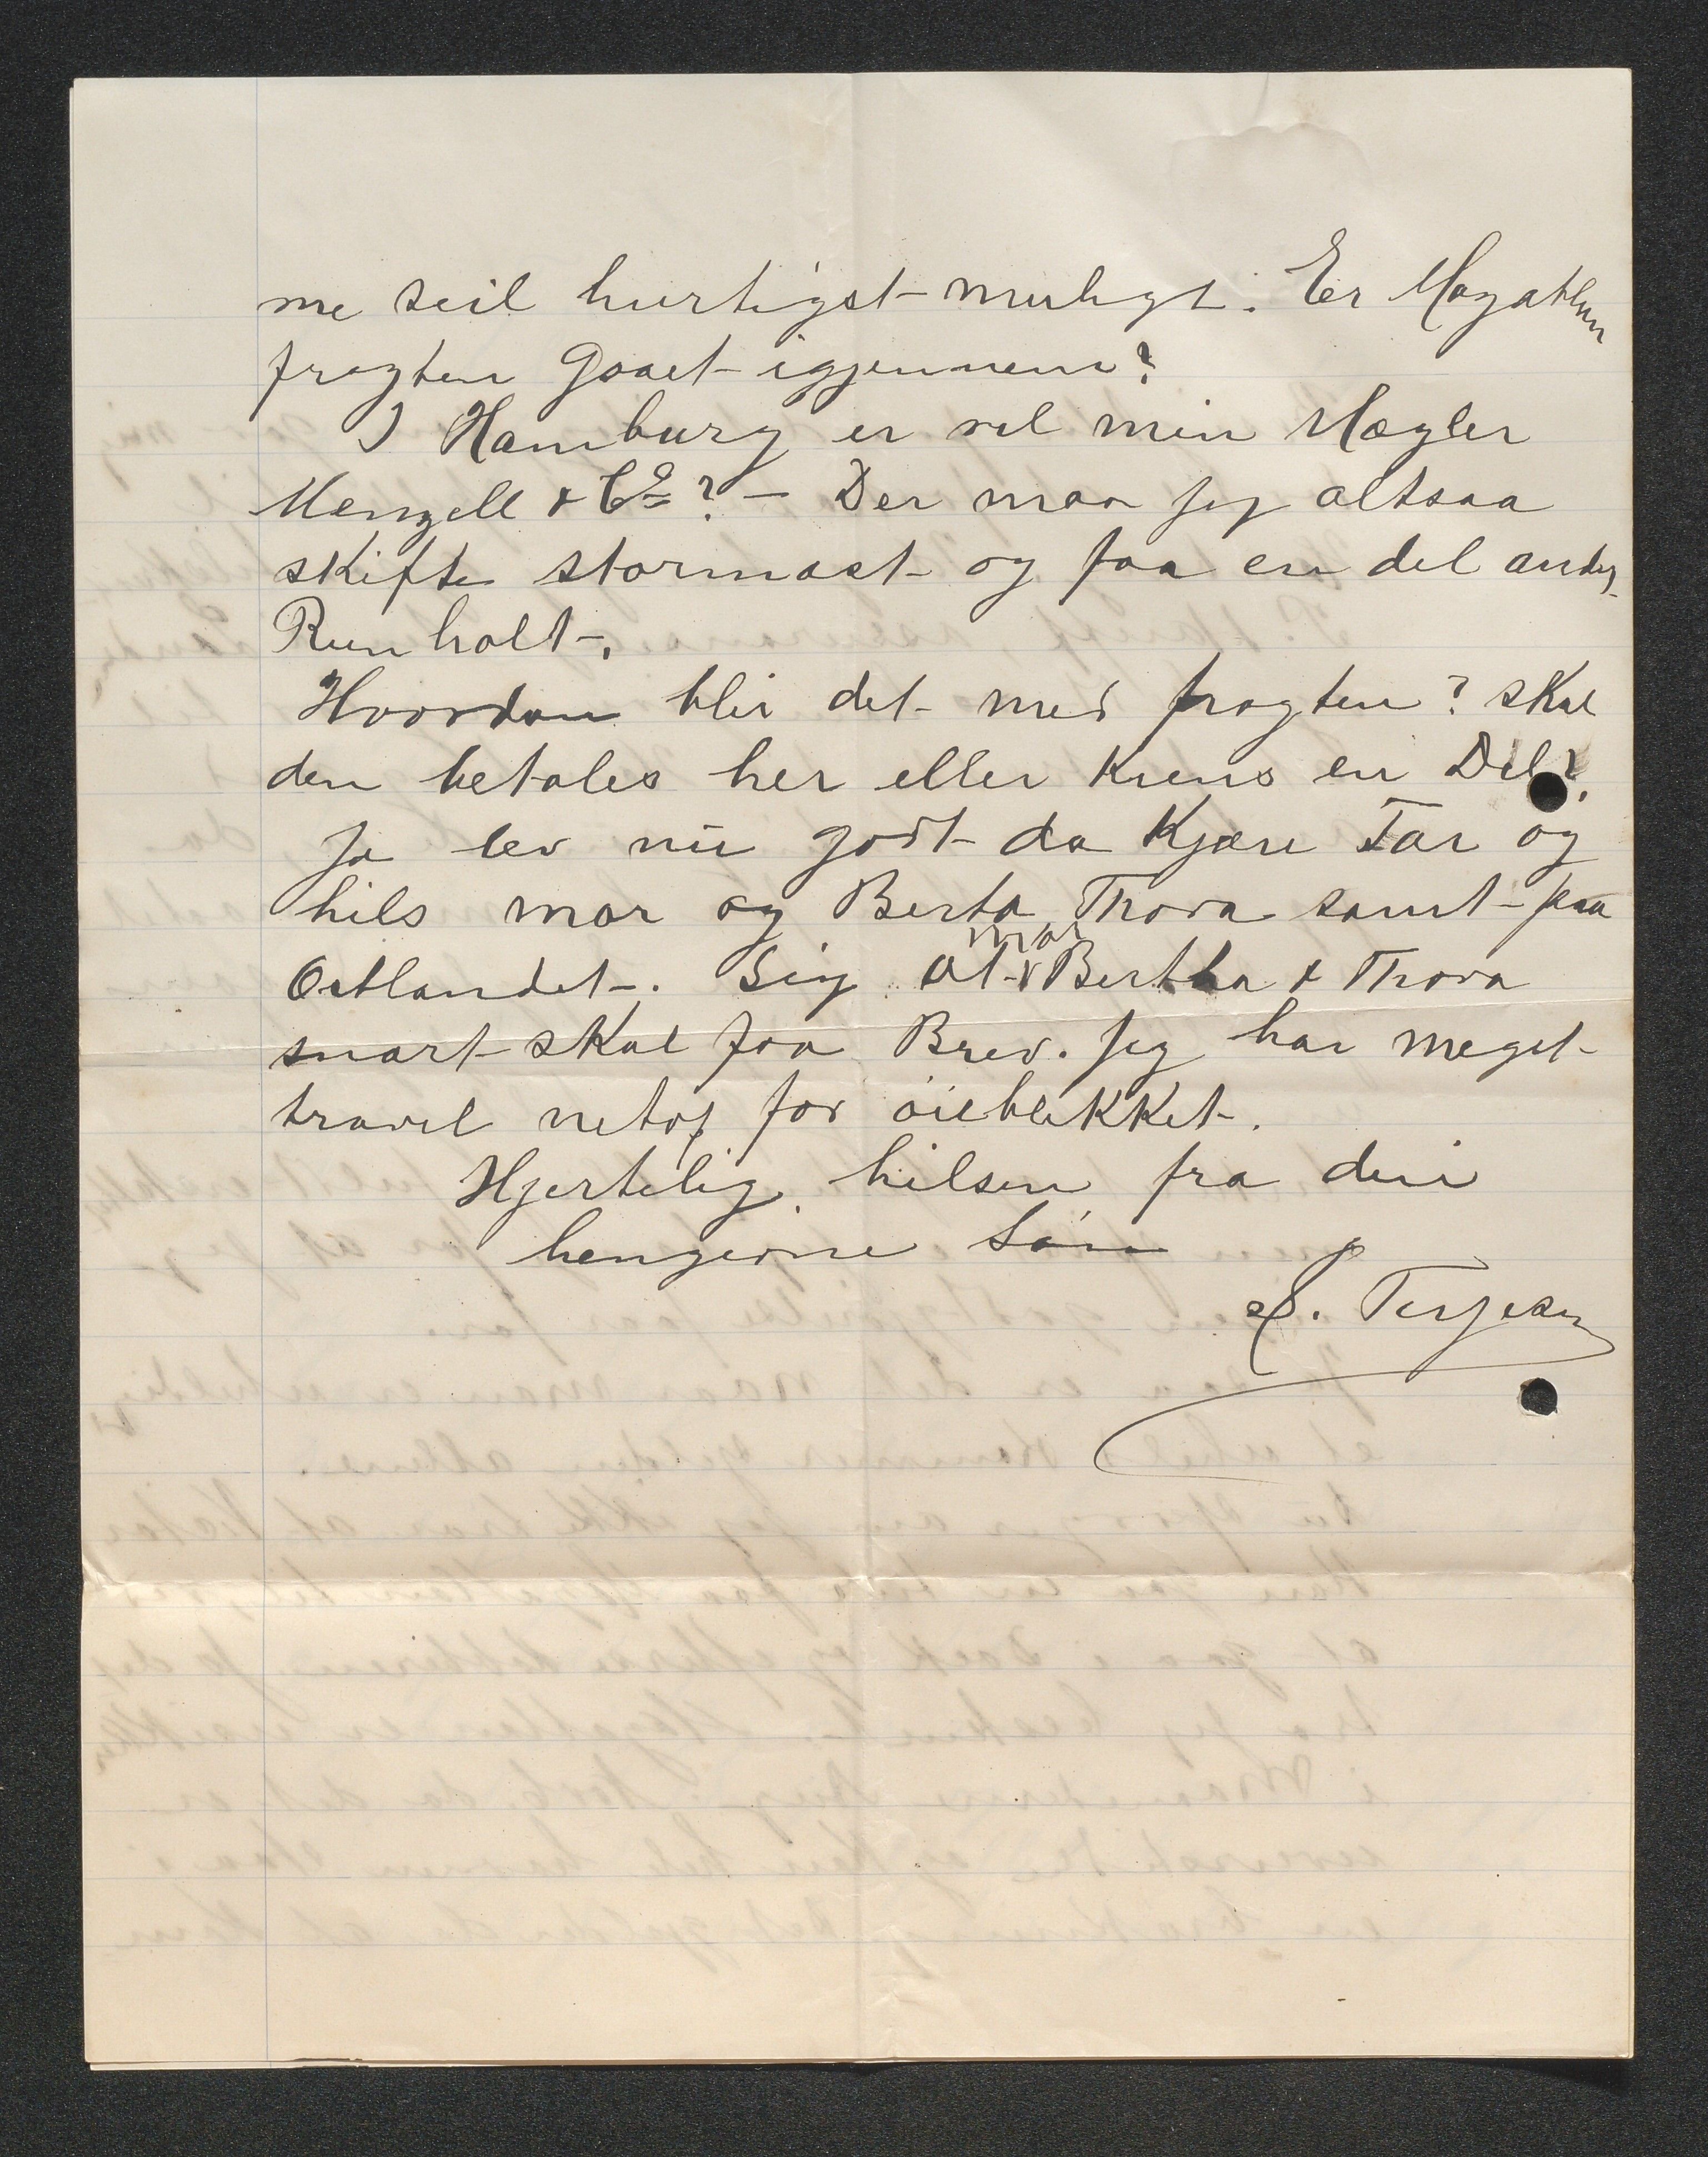 me seil hurtigst muligt. Er Mazatlan
fragten gaaet igjennem?
I Hamburg er vel min Mægler
Menzell & Co? - Der maa jeg altsaa
skifte stormast og faa en del andet
Rundholt.
Hvordan blir det med fragten? skal
den betales her eller kuns en Del?
Ja lev nu godt da kjære Far og
hils mor og Berta, Thora samt paa
Østlandet. Sig at mor & Bertha & Thora
snart skal faa Brev. Jeg har meget
travel netop for öieblikket.
Hjertelig hilsen fra din
hengivne Sön
Terjesen